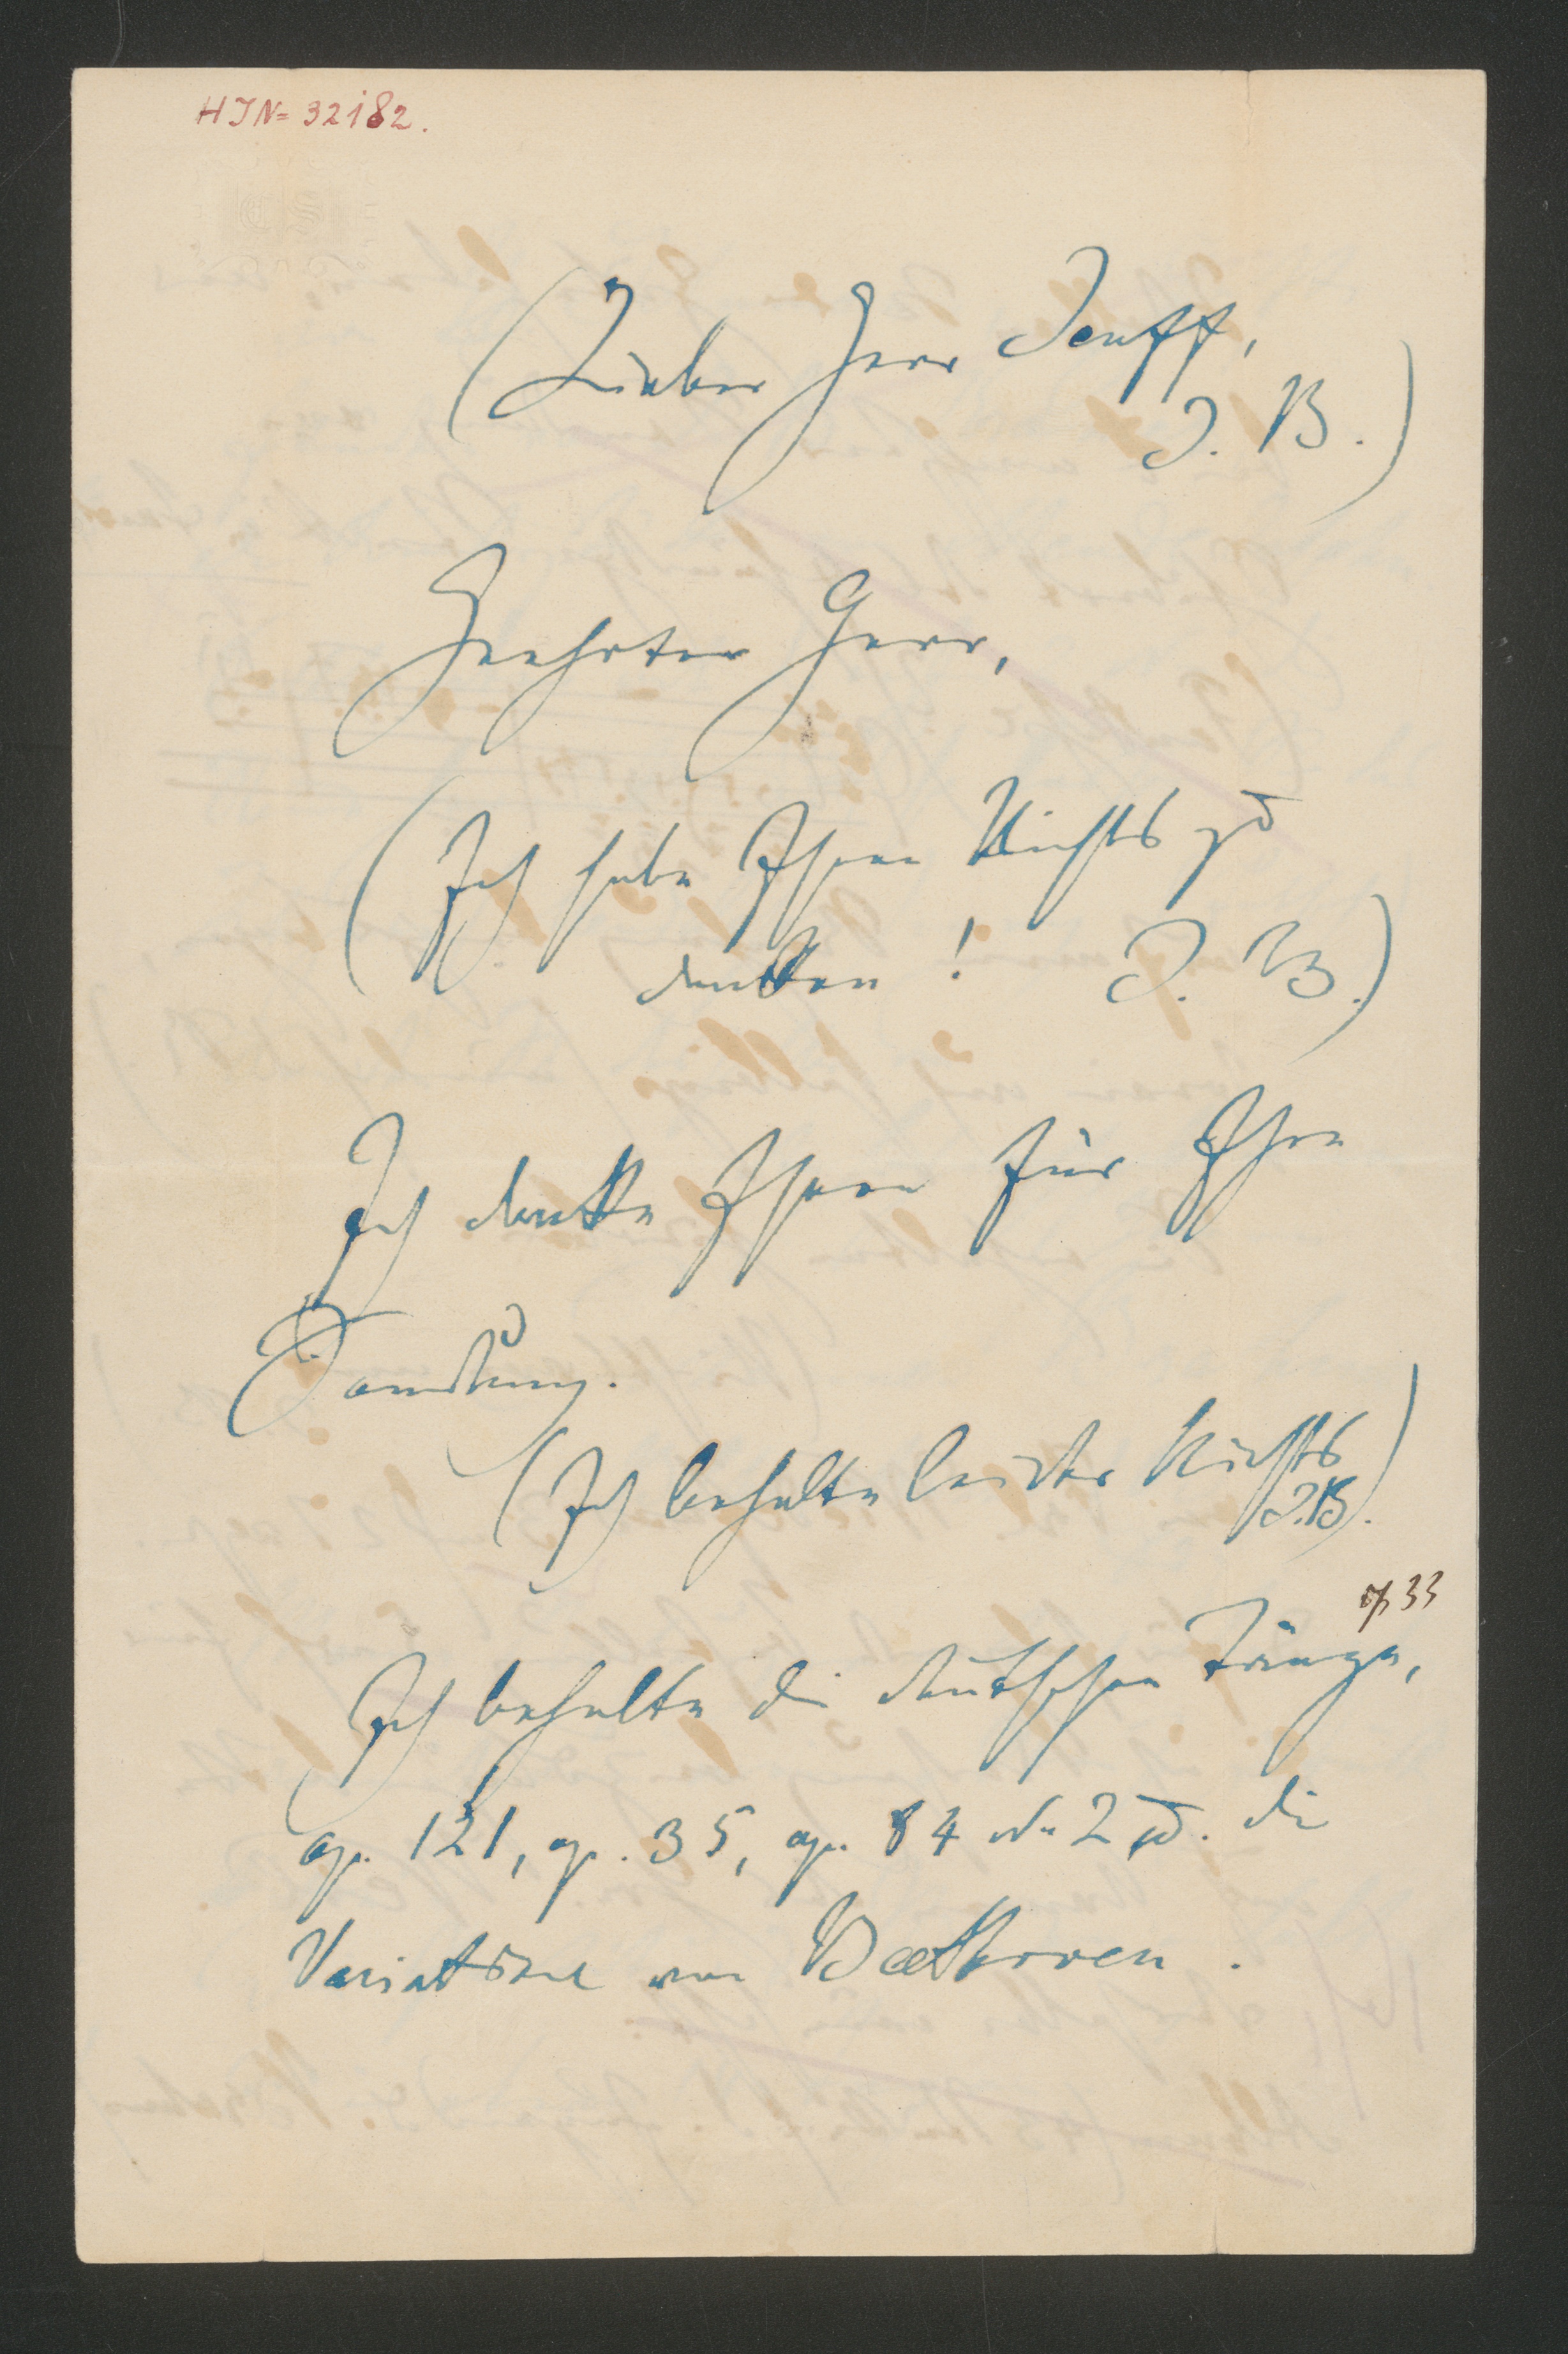 HIN= 32182.
CS
(Lieber Herr Senff,
J. B.)
Geehrter Herr,
(Ich habe Ihnen Nichts zu
danken! J. B.)
Ich danke Ihnen für Ihre
Sendung.
(Ich behalte leider Nichts
J.B.)
op 33
Ich behalte die deutschen Tänze,
op. 121, op. 35, op. 84 No 2 u. die
Variationen von Beethoven.